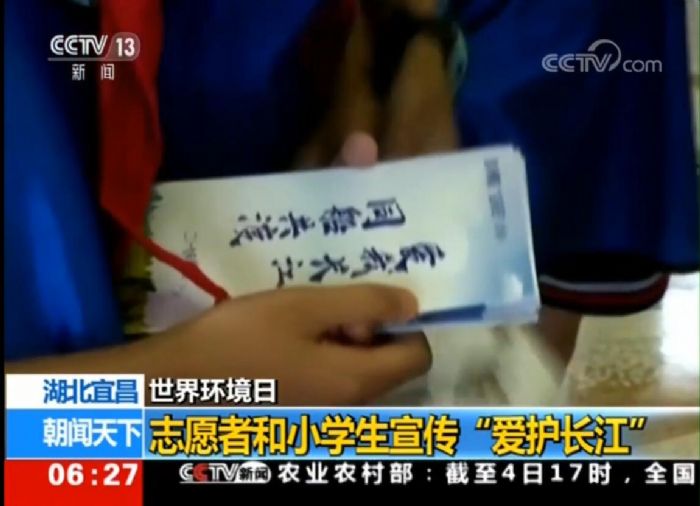 CCTV 13
新闻
CCTV.com
同舟共渡
爱我长江
湖北宜昌
世界环境日
朝闻天下
志愿者和小学生宣传“爱护长江”
06:27
CCTV新闻
农业农村部：截至4日17时，全国